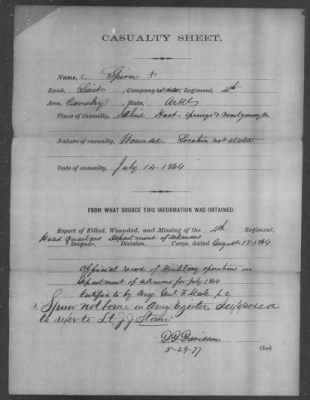 CASUALTY SHEET.
Name, Spiron +
Rank, Lieut, Company not stated, Regiment, 4th
Arm, Cavalry, State, Arks
Place of Casualty, Hot Springs & Montgomery
Nature of casualty, Wounded Location not stated
Date of casualty, July 14 1864
FROM WHAT SOURCE THIS INFORMATION WAS OBTAINED.
Report of Killed, Wounded, and Missing of the 4th Regiment,
Head quarters Department of Arkansas
Brigade, Division, Corps, dated August 15 1864
Official record of Military operations in
Department of Arkansas for July 1864
Certified to by Maj. Genl F Steele
* not borne on Army register supposed
to refer to Lt. J. J. Storm
D. D. Davidson
5-29-77 Clerk